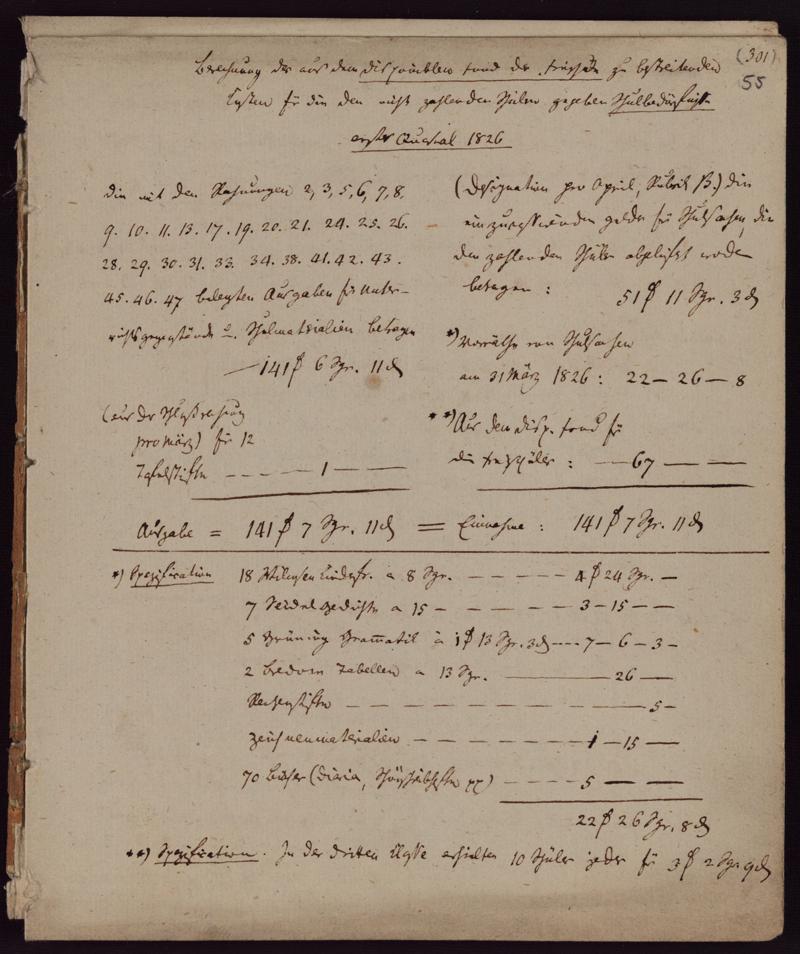 (301)
55
Berechnung der aus dem disponiblen Fond der Freischule zu bestreitenden
Kosten für die den nicht zahlenden Schülern gegebenen Schulbedürfnisse
erstes Quartal 1826
Die mit den Rechnungen 2, 3, 5, 6, 7, 8,
9. 10. 11. 13. 17. 19. 20. 21. 24. 25. 26.
28. 29. 30. 31. 33. 34. 38. 41. 42. 43.
45. 46. 47 belegten Ausgaben für Unter-
richtsgegenstände u. Schulmaterialien betragen
—141 ₰ 6 Sgr. 11 d
(aus der Schlußrechnung
pro März) für 12
Tafelstifte — — — 1 — —
(Designation pro April, Rubrik B.) Die
einzunehmenden Gelder für Schulsachen, die
den zahlenden Schülern abgeliefert worden
betragen :
51 ₰ 11 Sgr. 3 d
*) Vorräthe von Schulsachen
am 31 März 1826 : 22 — 26 — 8
**) Aus dem disp. Fond für
die Freischüler : — 67 — — —
Ausgabe = 141 ₰ 7 Sgr. 11 d = Einnahme : 141 ₰ 7 Sgr. 11 d
*) Spezification 18 Wilmsen Kinderfr. a 8 Sgr. — — — — 4 ₰ 24 Sgr. —
7 Seidel Gedichte a 15 — — — — — 3 — 15 — —
5 Grüning Grammatik à 1 ₰ 13 Sgr. 3 d — 7 — 6 — 3 —
2 Bredow Tabellen a 13 Sgr. — 26 —
— — — — — — — 5 —
Zeichnenmaterialien — — — — — 1 — 15 —
70 Bücher (Diaria, Schönschreibhefte pp) — — 5 — — —
22 ₰ 26 Sgr. 8 d
**) Spezification. In der dritten Klasse erhielten 10 Schüler jeder für 3 ₰ 2 Sgr 9 d